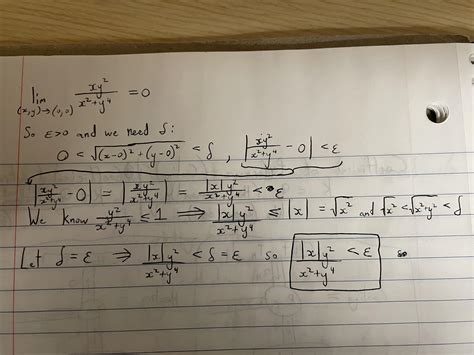 lim (x,y)→(0,0) xy²/(x²+y⁴) = 0
So ε>0 and we need δ:
0 < √((x-0)²+(y-0)²) < δ , |xy²/(x²+y⁴) - 0| < ε
|xy²/(x²+y⁴) - 0| = |xy²/(x²+y⁴)| = |x|y²/(x²+y⁴) < ε
We know y²/(x²+y⁴) ≤ 1 ⟹ |x|y²/(x²+y⁴) ≤ |x| = √x² and √x² < √(x²+y²) < δ
Let δ = ε ⟹ |x|y²/(x²+y⁴) < δ = ε so |x|y²/(x²+y⁴) < ε